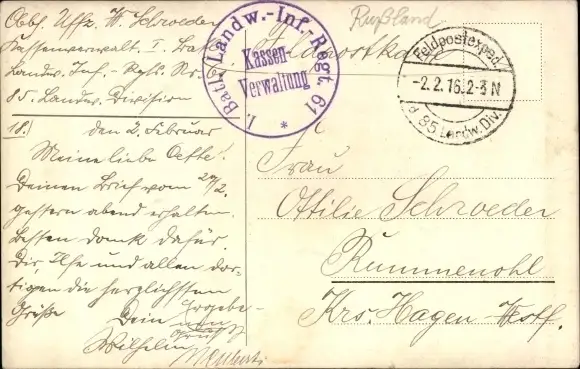 Obbh. Uffz. W. Schroeder
Kassenverwalt. I. Batl.
Landw. Inf.-Regts. Nr. 61
85. Landw. Division
Feldpostkarte
Rußland
I. Batl. Landw.-Inf.-Regt. 61
Kassen-
Verwaltung
Feldpostexped.
-2.2.16.2-3 N
d. 85 Landw. Div.
18.) den 2. Februar
Meine liebe Oette!
Deinen Brief vom
gestern abend erhalten.
Besten Dank dafür.
Dir, Ilse und allen dor-
tigen die herzlichsten
Grüße
Dein
Wilhelm
Frau
Ottilie Schroeder
Rummenohl
Krs. Hagen-Westf.